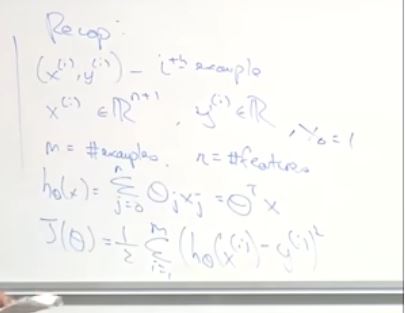 Recap:
(x⁽ⁱ⁾, y⁽ⁱ⁾) – iᵗʰ example
x⁽ⁱ⁾ ∈ ℝⁿ⁺¹, y⁽ⁱ⁾ ∈ ℝ, x₀ = 1
m = #examples, n = #features
h_θ(x) = ∑_{j=0}^{n} θ_j x_j = θᵀx
J(θ) = ½ ∑_{i=1}^{m} (h_θ(x⁽ⁱ⁾) – y⁽ⁱ⁾)²